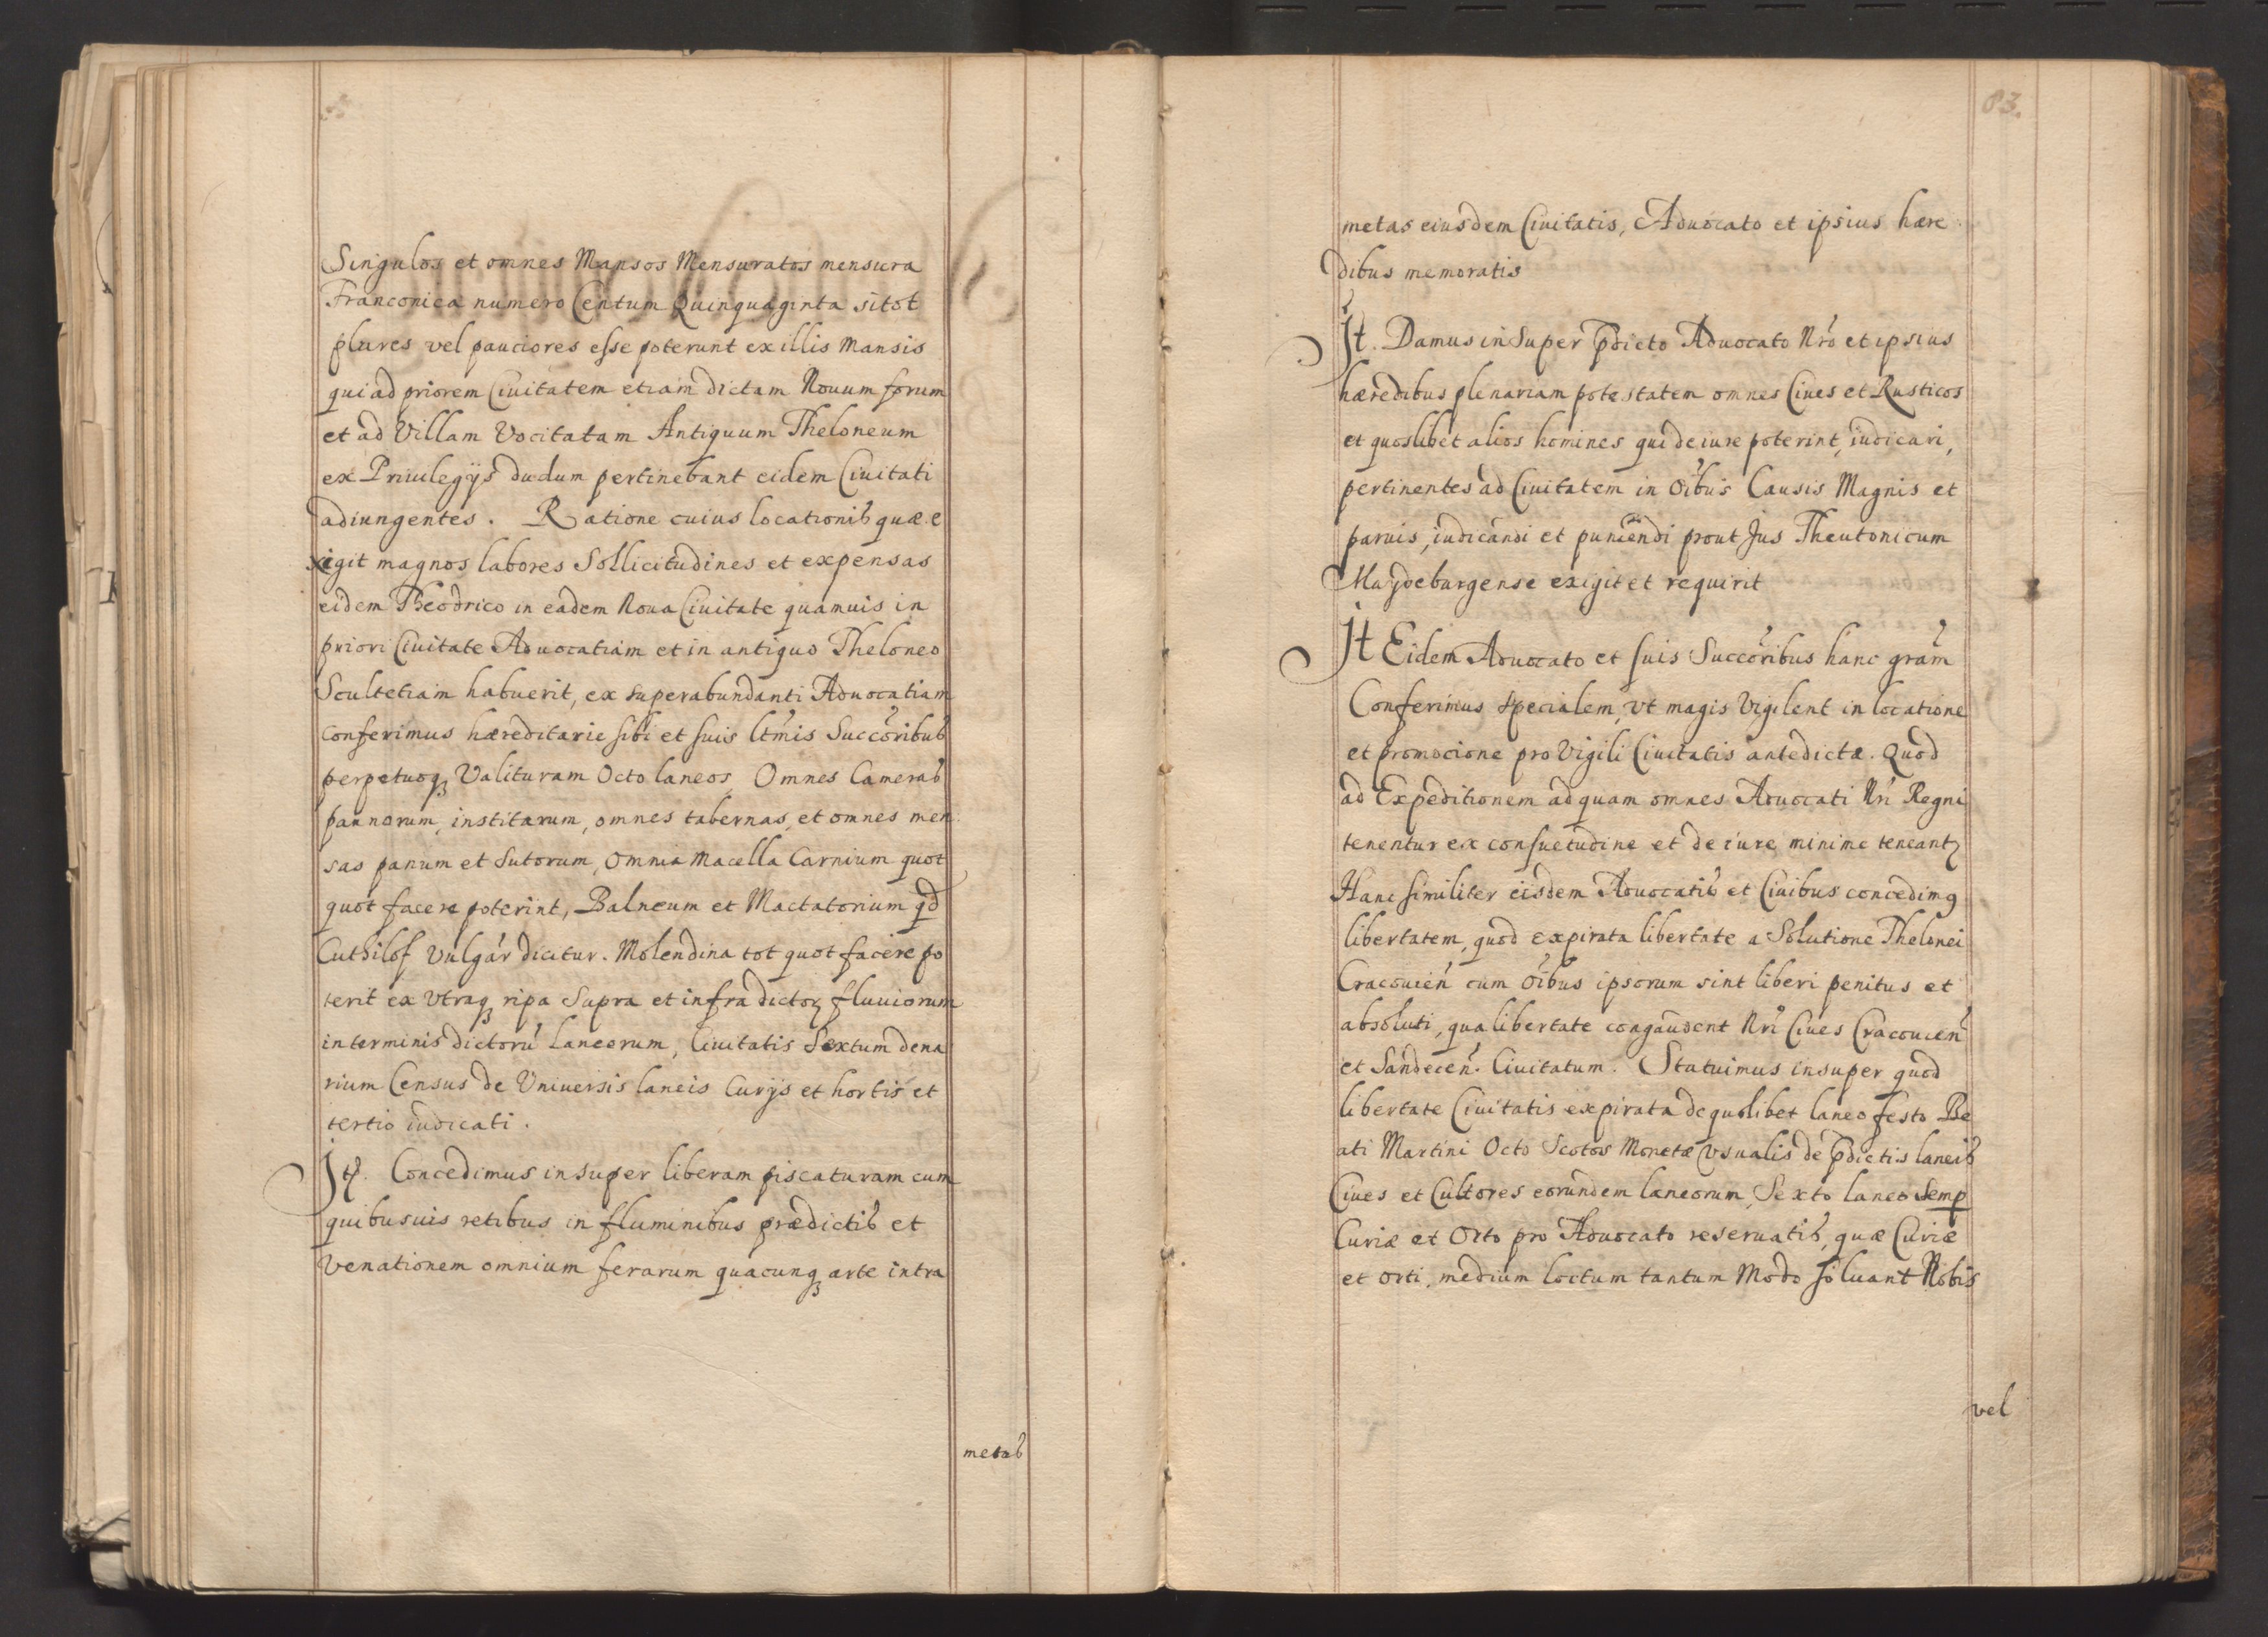 Singulos et omnes Mansos Mensuratos mensura
Franconica numero Centum Quinquaginta sitot
plures vel pauciores esse poterunt ex illis Mansis
qui ad priorem Ciuitatem etiam dictam Nouum forum
et ad Villam Vocitatam Antiquum Theloneum
ex Priuilegijs dudum pertinebant eidem Ciuitati
adiungentes. Ratione cuius locationis quæ e
xigit magnos labores Sollicitudines et expensas
eidem Theodrico in eadem Noua Ciuitate quamuis in
priori Ciuitate Aduocatiam et in antiquo Theloneo
Scultetiam habuerit, ex superabundanti Aduocatiam
conferimus hæreditarie sibi et suis ltmis Succoribus
perpetuoq Valituram Octo laneos, Omnes Cameras
pannorum, institarum, omnes tabernas, et omnes men
sas panum et Sutorum, omnia Macella Carnium quot
quot facere poterint, Balneum et Mactatorium qd
Cuthilof Vulgar dicitur. Molendina tot quot facere po
terit ex vtraq ripa Supra et infra dictoꝝ fluuiorum
in terminis dictorū Laneorum, Ciuitatis Sextum dena
rium Census de Uniuersis laneis Curijs et hortis et
tertio iudicati.
Jtꝭ. Concedimus insuper liberam piscaturam cum
quibusuis retibus in fluminibus prædictis et
Venationem omnium ferarum quacunq arte intra
metas
83.
metas eiusdem Ciuitatis, Aduocato et ipsius hære
dibus memoratis
Jt. Damus inSuper Pdicto Aduocato Nrō et ipsius
hæredibus plenariam potestatem omnes Ciues et Rusticos
et quoslibet alios homines qui de iure poterint, iudicari,
pertinentes ad Ciuitatem in oībus Causis Magnis et
paruis, iudicandi et puniendi prout Jus Theutonicum
Maydeburgense exigit et requirit
Jt Eidem Aduocato et suis Succoribus hanc gram
Conferimus specialem, vt magis Vigilent in locatione
et promocione pro Vigili Ciuitatis antedictæ. Quod
ad Expeditionem ad quam omnes Aduocati Nri Regni
tenentur ex consuetudine et de iure minime teneantꝛ
Hanc similiter eisdem Aduocatis et Ciuibus concedimꝯ
libertatem, quod expirata libertate a Solutione Thelonei
Cracouien cum oībus ipsorum sint liberi penitus et
absoluti, qua libertate congaudent Nri Ciues Cracouien
et Sandecen. Ciuitatum. Statuimus insuper quod
libertate Ciuitatis expirata de quolibet laneo festo Be
ati Martini Octo Scotos Monetæ Vsualis de Pdictis laneis
Ciues et Cultores eorundem laneorum, Sexto laneo Semp
Curiæ et Orto pro Aduocato reseruatis, quæ Curiæ
et orti, medium loctum tantum Modo soluant Nobis
vel